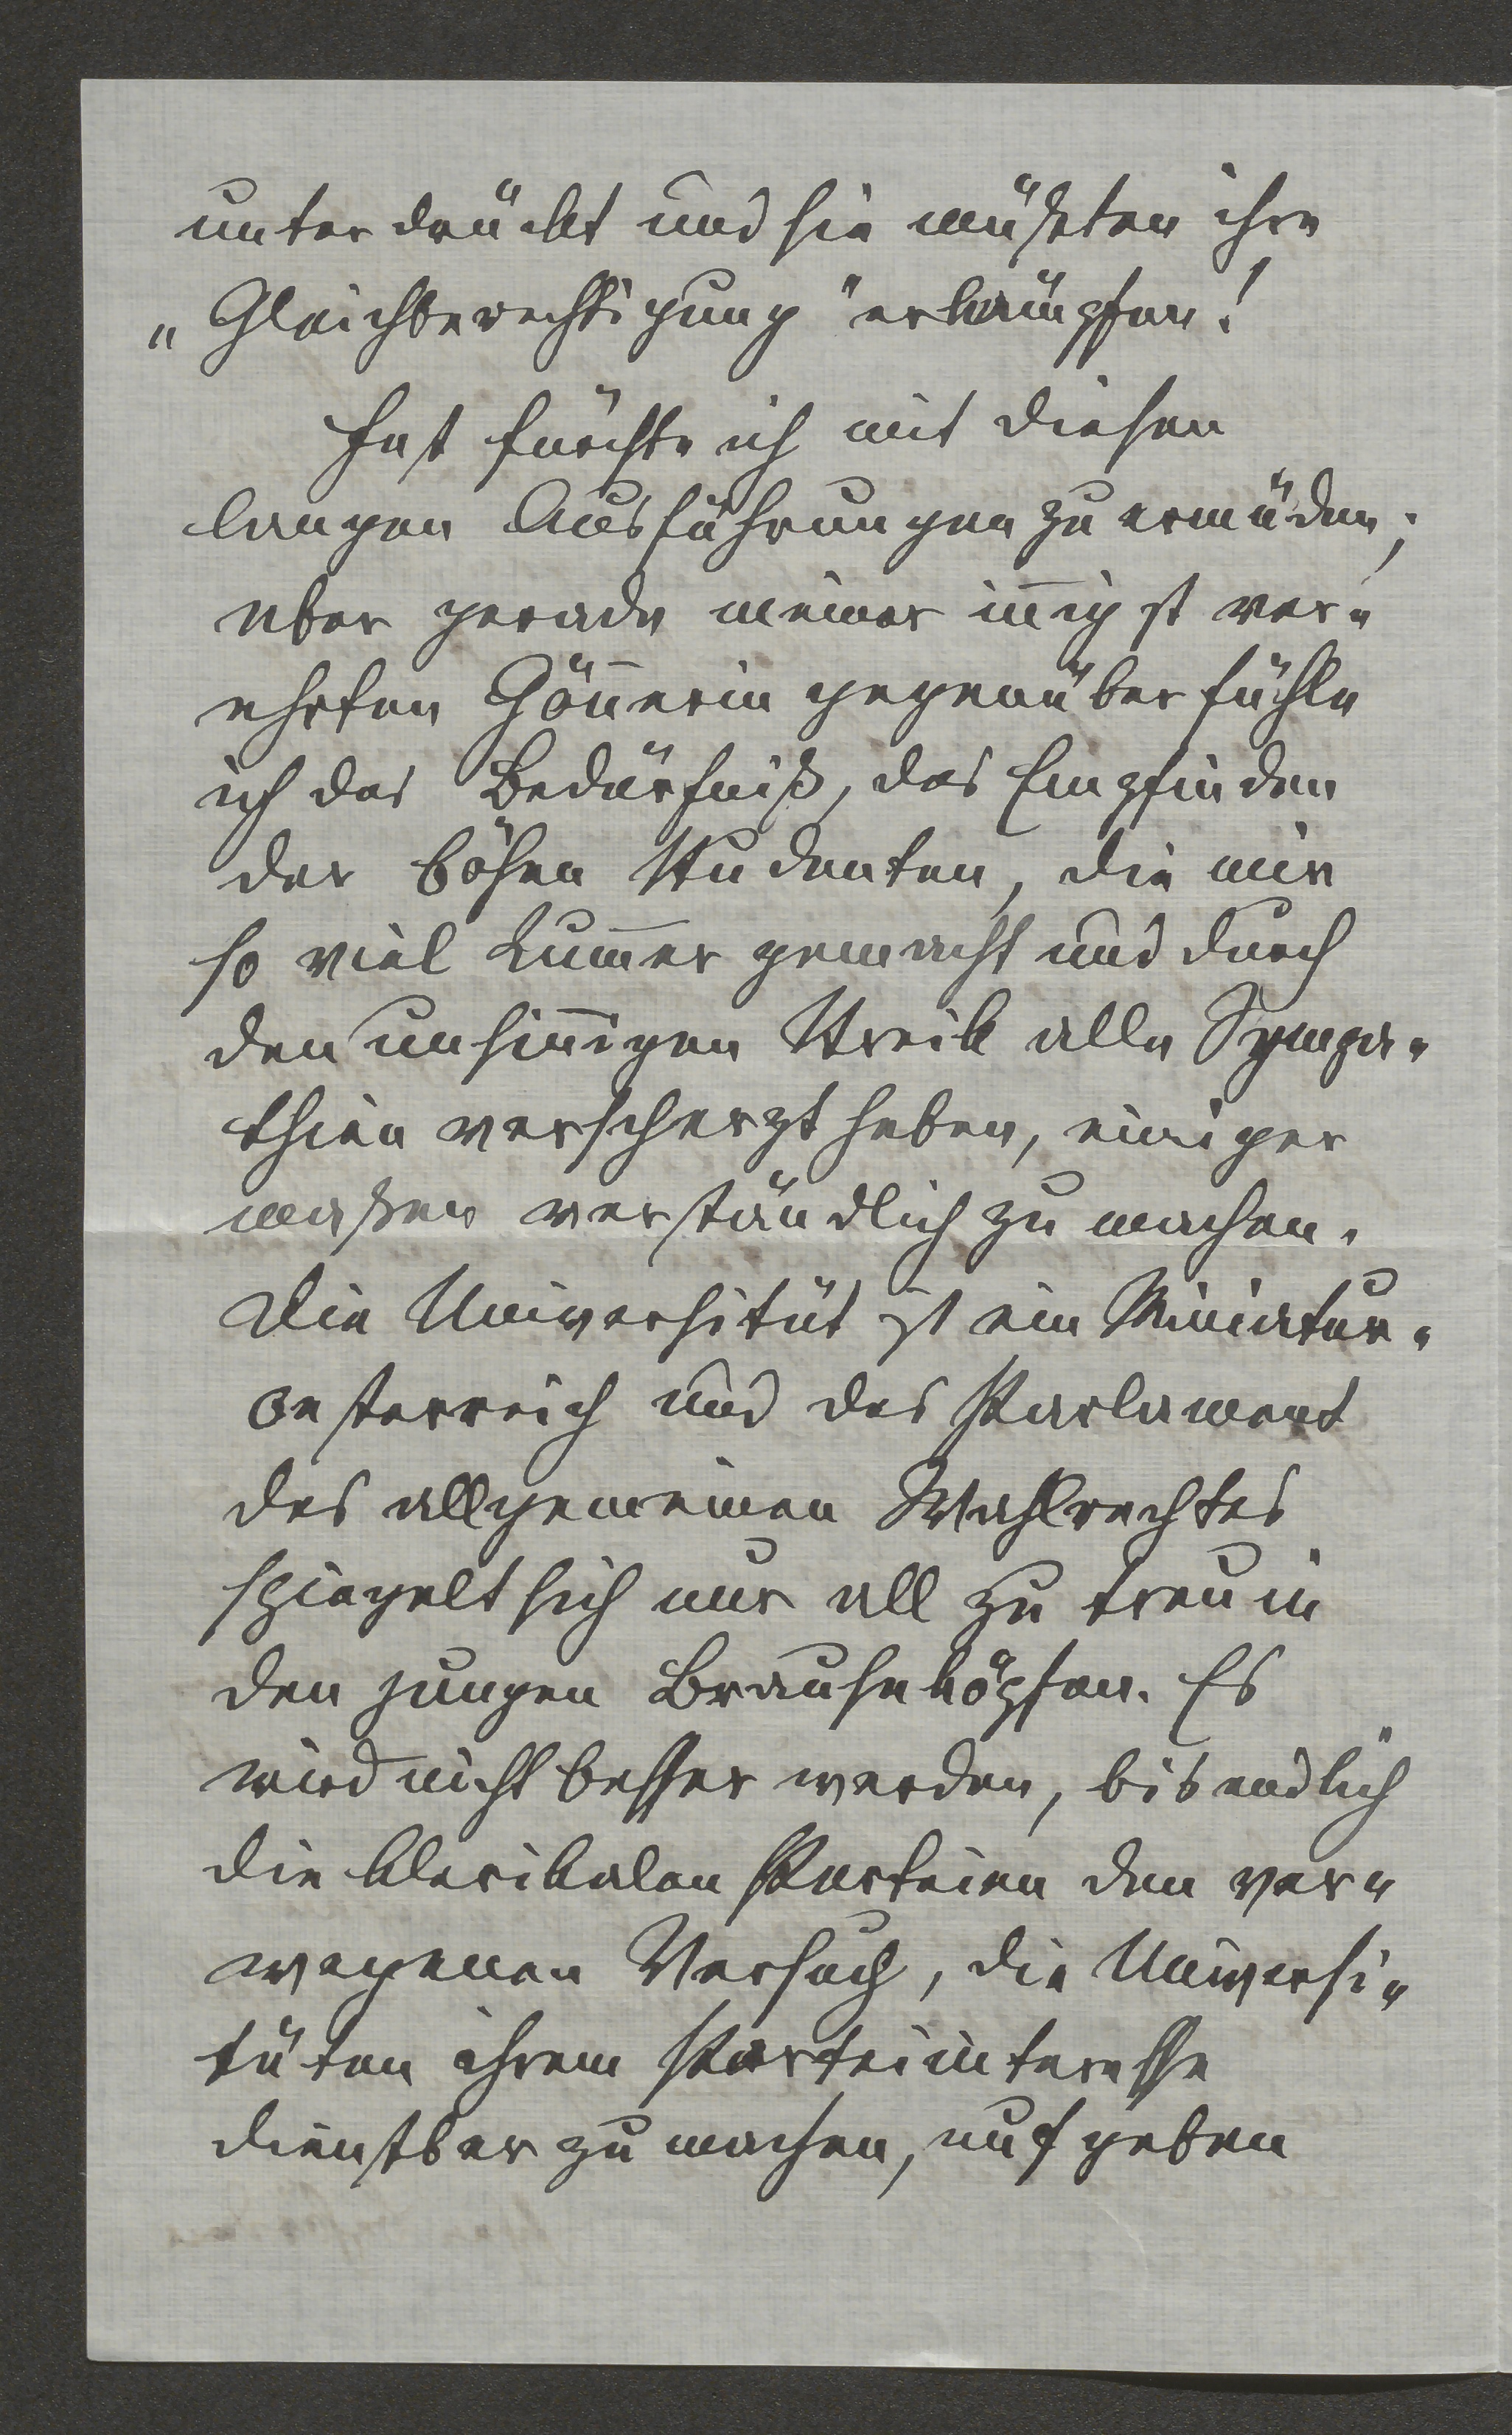 unterdrückt und sie müßten ihre
„Gleichberechtigung" erkämpfen!
Fast fürchte ich mit diesen
langen Ausführungen zu ermüden;
aber gerade meiner iñigst ver-
ehrten Göñerin gegenüber fühle
ich das Bedürfniß, das Empfinden
der bösen Studenten, die mir
so viel Kum̄er gemacht und durch
den unsiñigen Streik alle Sympa-
thien verscherzt haben, einiger
maßen verständlich zu machen.
Die Universität ist ein Miniatur-
oesterreich und das Parlament
des allgemeinen Wahlrechtes
spiegelt sich nur all zu treu in
den jungen Brauseköpfen. Es
wird nicht besser werden, bis endlich
die klerikalen Parteien den ver-
wegenen Versuch, die Universi-
täten ihrem Parteiinteresse
dienstbar zu machen, aufgeben